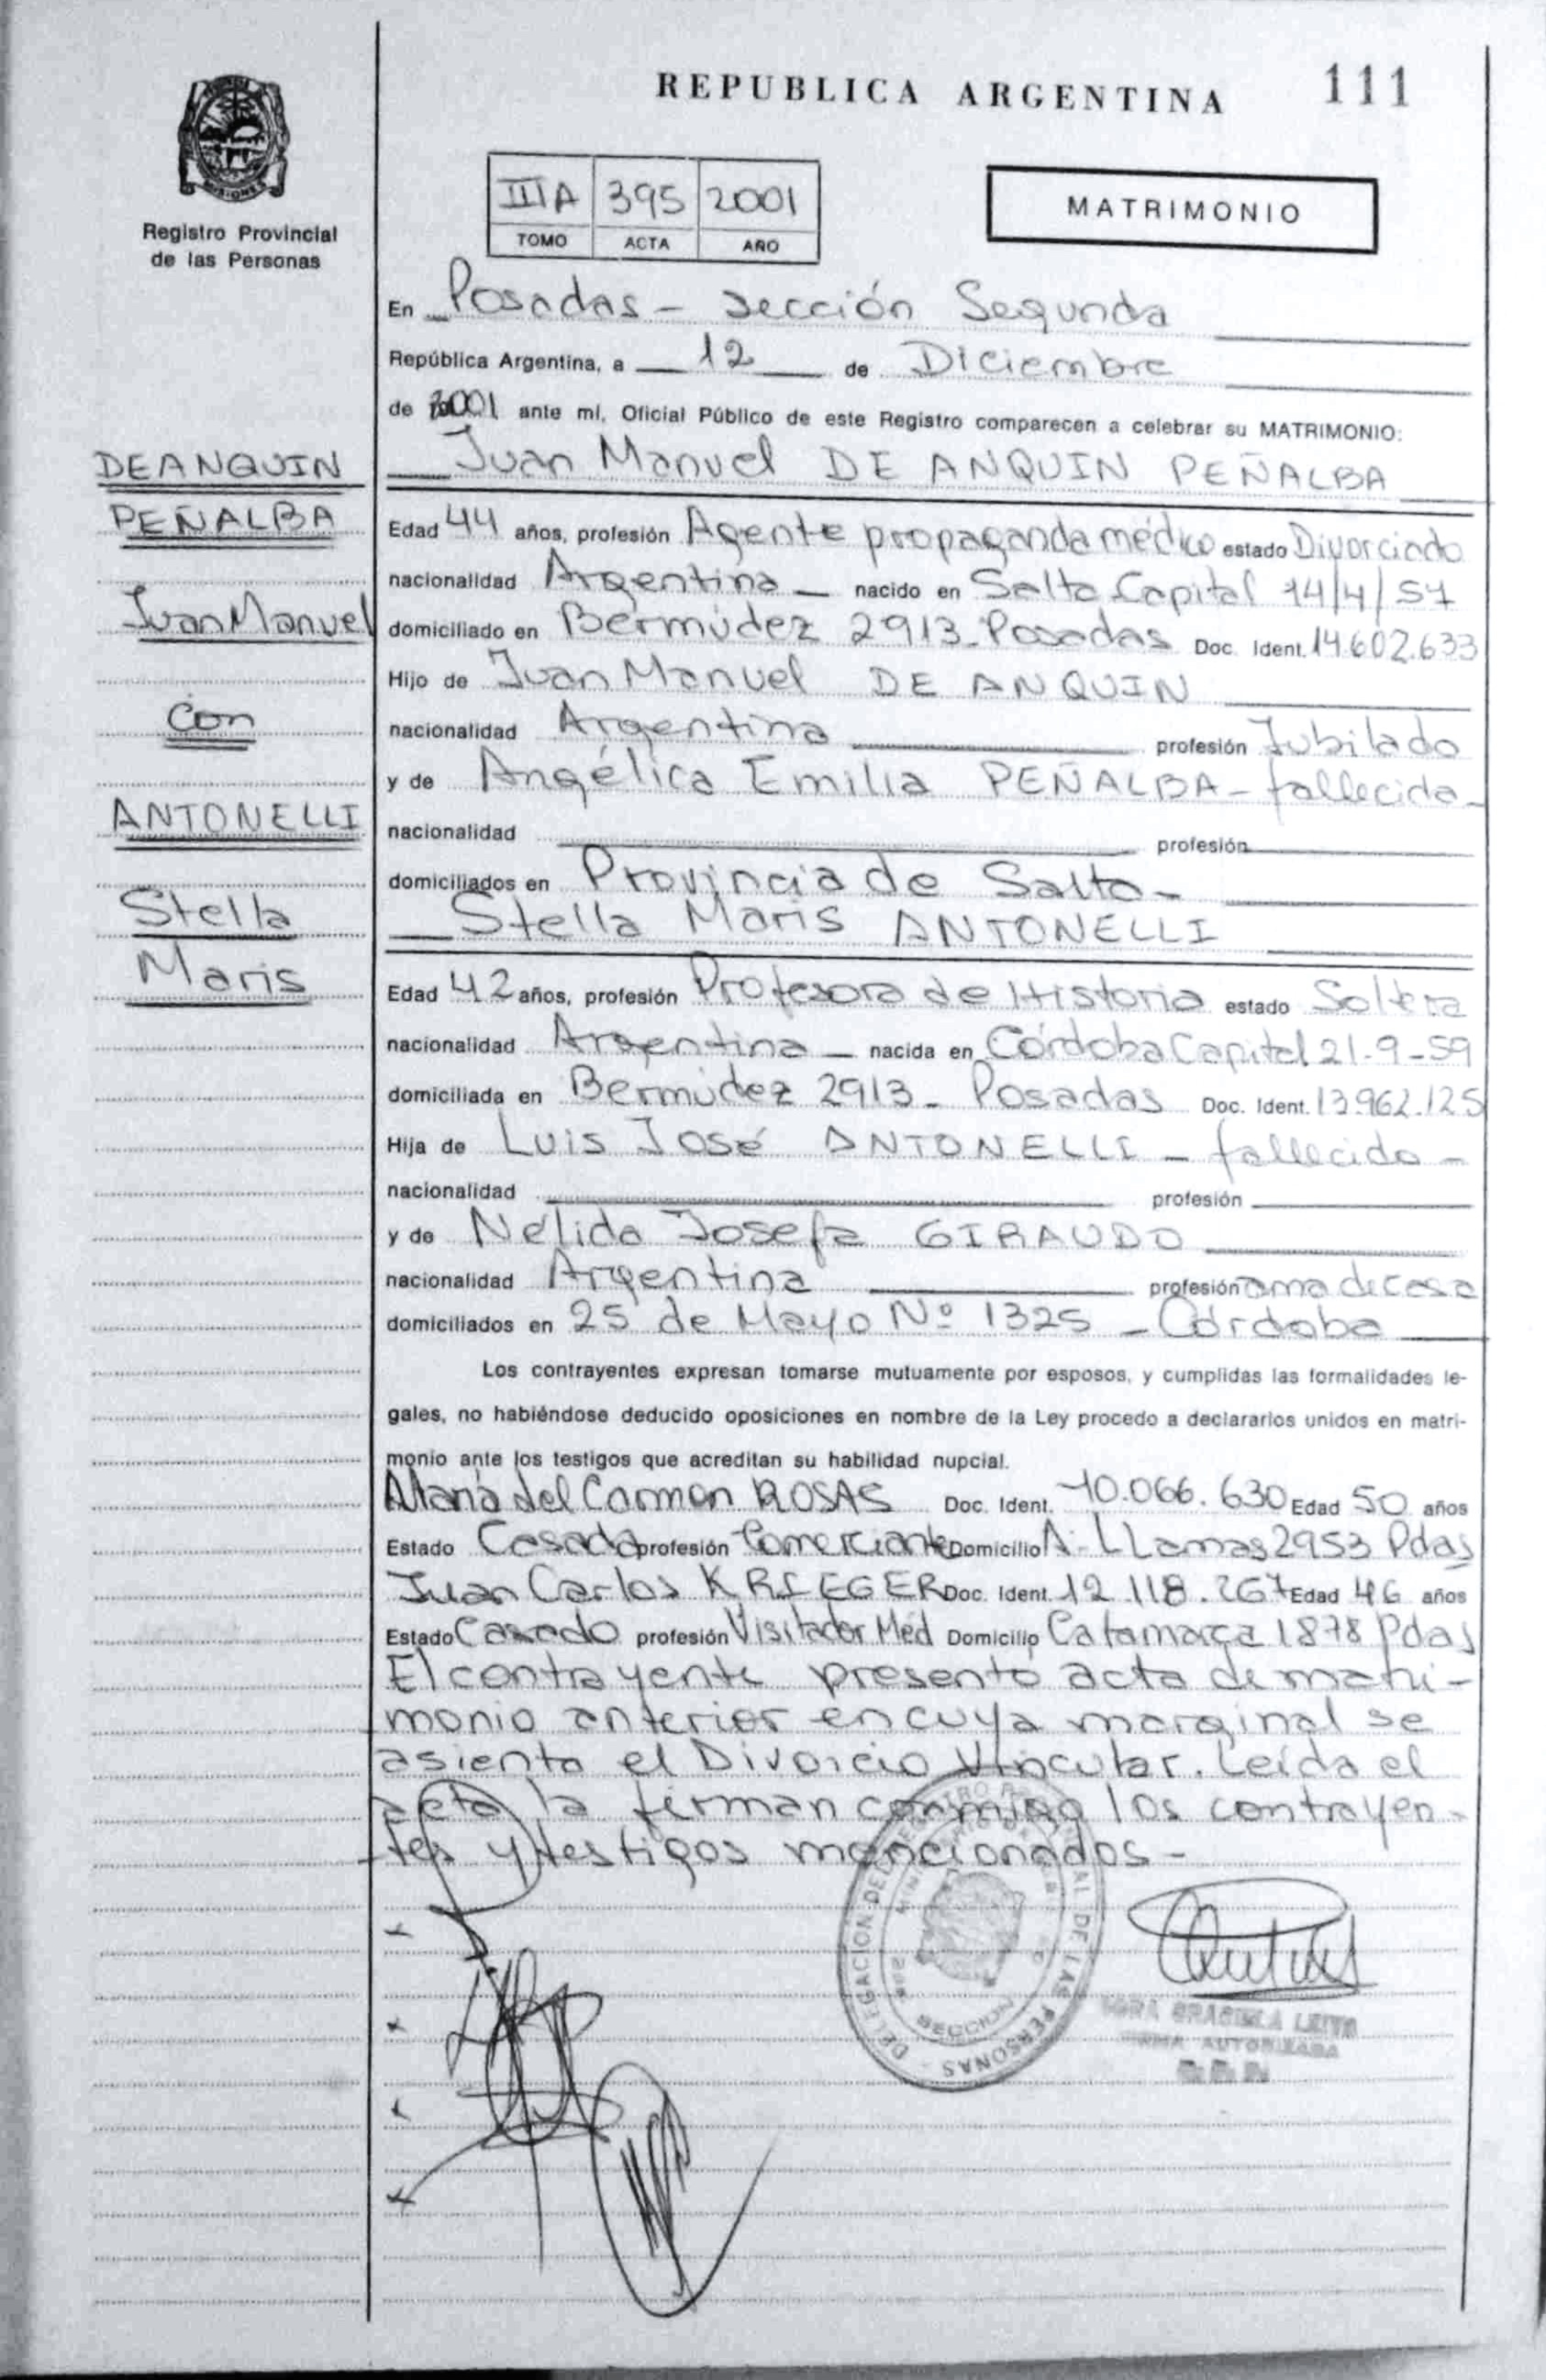 REPUBLICA ARGENTINA 111
MISIONES
Registro Provincial
de las Personas
IIIA 395 2001
TOMO ACTA AÑO
MATRIMONIO
En Posadas - Sección Segunda
República Argentina, a 12 de Diciembre
de 2001 ante mí, Oficial Público de este Registro comparecen a celebrar su MATRIMONIO:
Juan Manuel DE ANQUIN PEÑALBA
DE ANQUIN
PEÑALBA
Juan Manuel
con
ANTONELLI
Stella
Maris
Edad 44 años, profesión Agente propaganda médico estado Divorciado
nacionalidad Argentina - nacido en Salta Capital 14/4/57
domiciliado en Bermúdez 2913 - Posadas Doc. Ident. 14.602.633
Hijo de Juan Manuel DE ANQUIN
nacionalidad Argentina profesión Jubilado
y de Angélica Emilia PEÑALBA - fallecida -
nacionalidad profesión
domiciliados en Provincia de Salta -
Stella Maris ANTONELLI
Edad 42 años, profesión Profesora de Historia estado Soltera
nacionalidad Argentina - nacida en Córdoba Capital 21-9-59
domiciliada en Bermúdez 2913 - Posadas Doc. Ident. 13.962.125
Hija de Luis José ANTONELLI - fallecido -
nacionalidad profesión
y de Nélida Josefa GIRAUDO
nacionalidad Argentina profesión ama de casa
domiciliados en 25 de Mayo Nº 1325 - Córdoba
Los contrayentes expresan tomarse mutuamente por esposos, y cumplidas las formalidades le-
gales, no habiéndose deducido oposiciones en nombre de la Ley procedo a declararlos unidos en matri-
monio ante los testigos que acreditan su habilidad nupcial.
María del Carmen ROSAS Doc. Ident. 10.066.630 Edad 50 años
Estado Casada profesión Comerciante Domicilio A. LLamas 2953 Pdas
Juan Carlos KRIEGER Doc. Ident. 12.118.267 Edad 46 años
Estado Casado profesión Visitador Med Domicilio Catamarca 1878 Pdas
El contrayente presento acta de matri-
monio anterior en cuya marginal se
asienta el Divorcio Vincular. Leída el
acta la firman conmigo los contrayen-
tes y testigos mencionados -
DELEGACION DEL REGISTRO PROVINCIAL DE LAS PERSONAS
SECCION
GRACIELA LEIVA
FIRMA AUTORIZADA